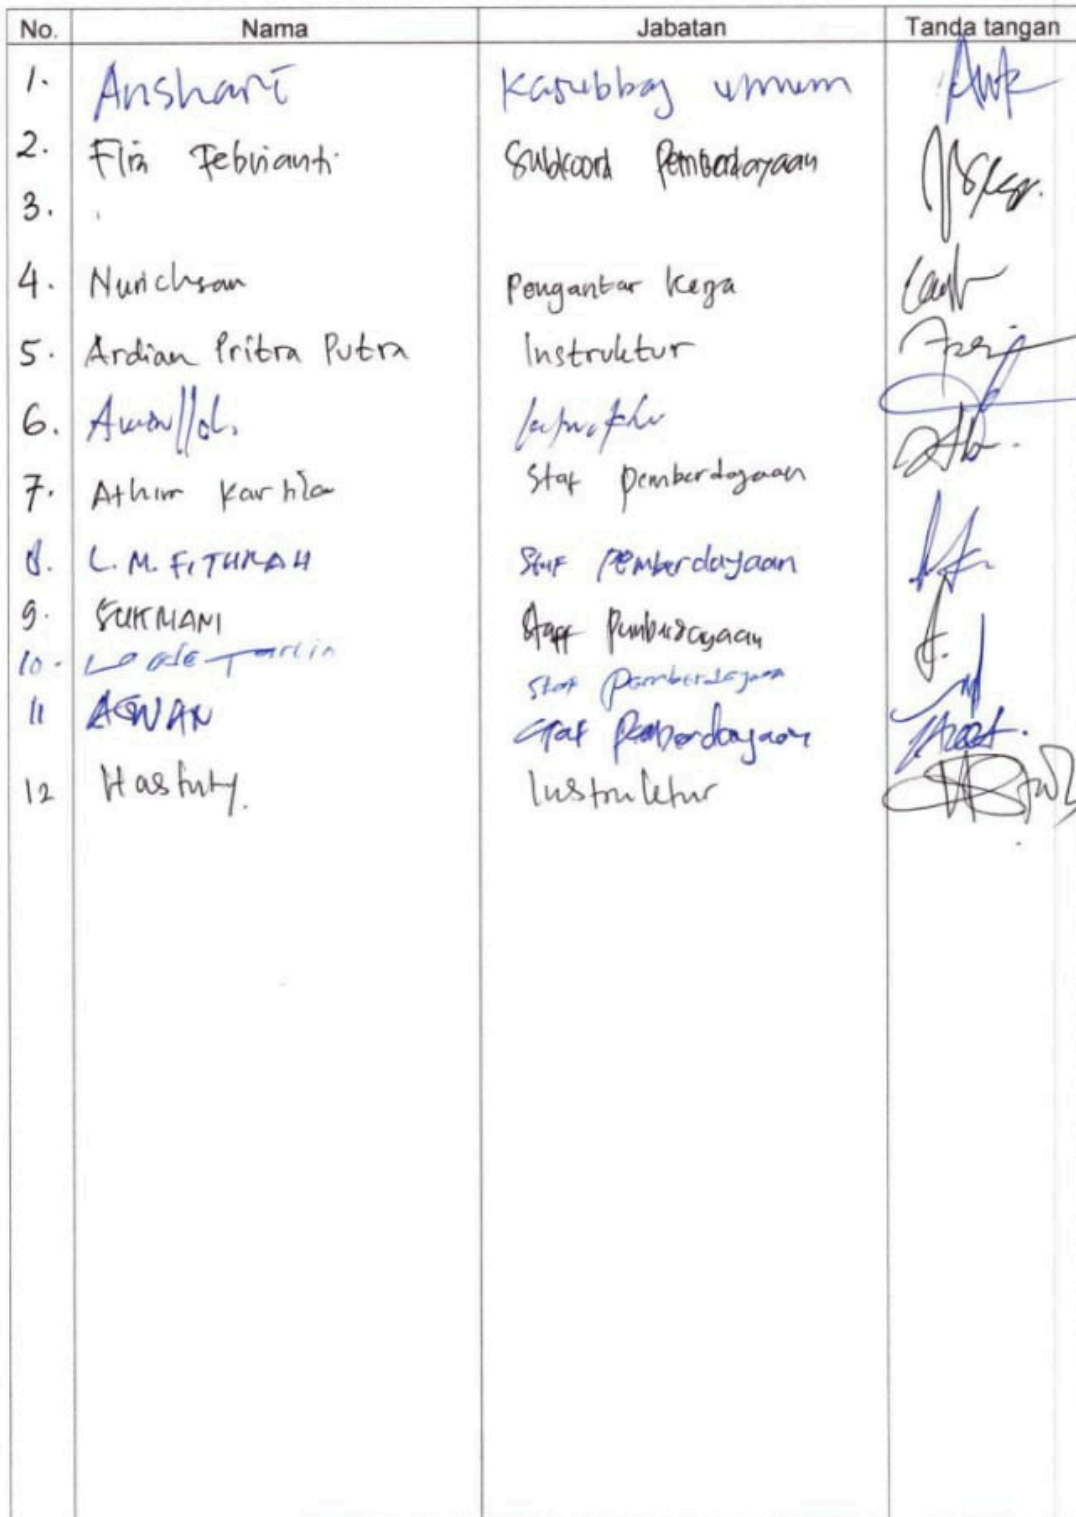 No. Nama Jabatan Tanda tangan
1. Anshari Kasubbag umum
2. Febrianti Subkoord Pemberdayaan
3.
4. Nurichsan Pengantar Kerja
5. Ardian Pritra Putra Instruktur
6.
7. Athim Staf pemberdayaan
8. L. M. FITHRAH Staf pemberdayaan
9. SUKMANI Staff Pemberdayaan
10. La Ode Staf pemberdayaan
11 AGWAN Staf pemberdayaan
12 Hastuty. Instruktur